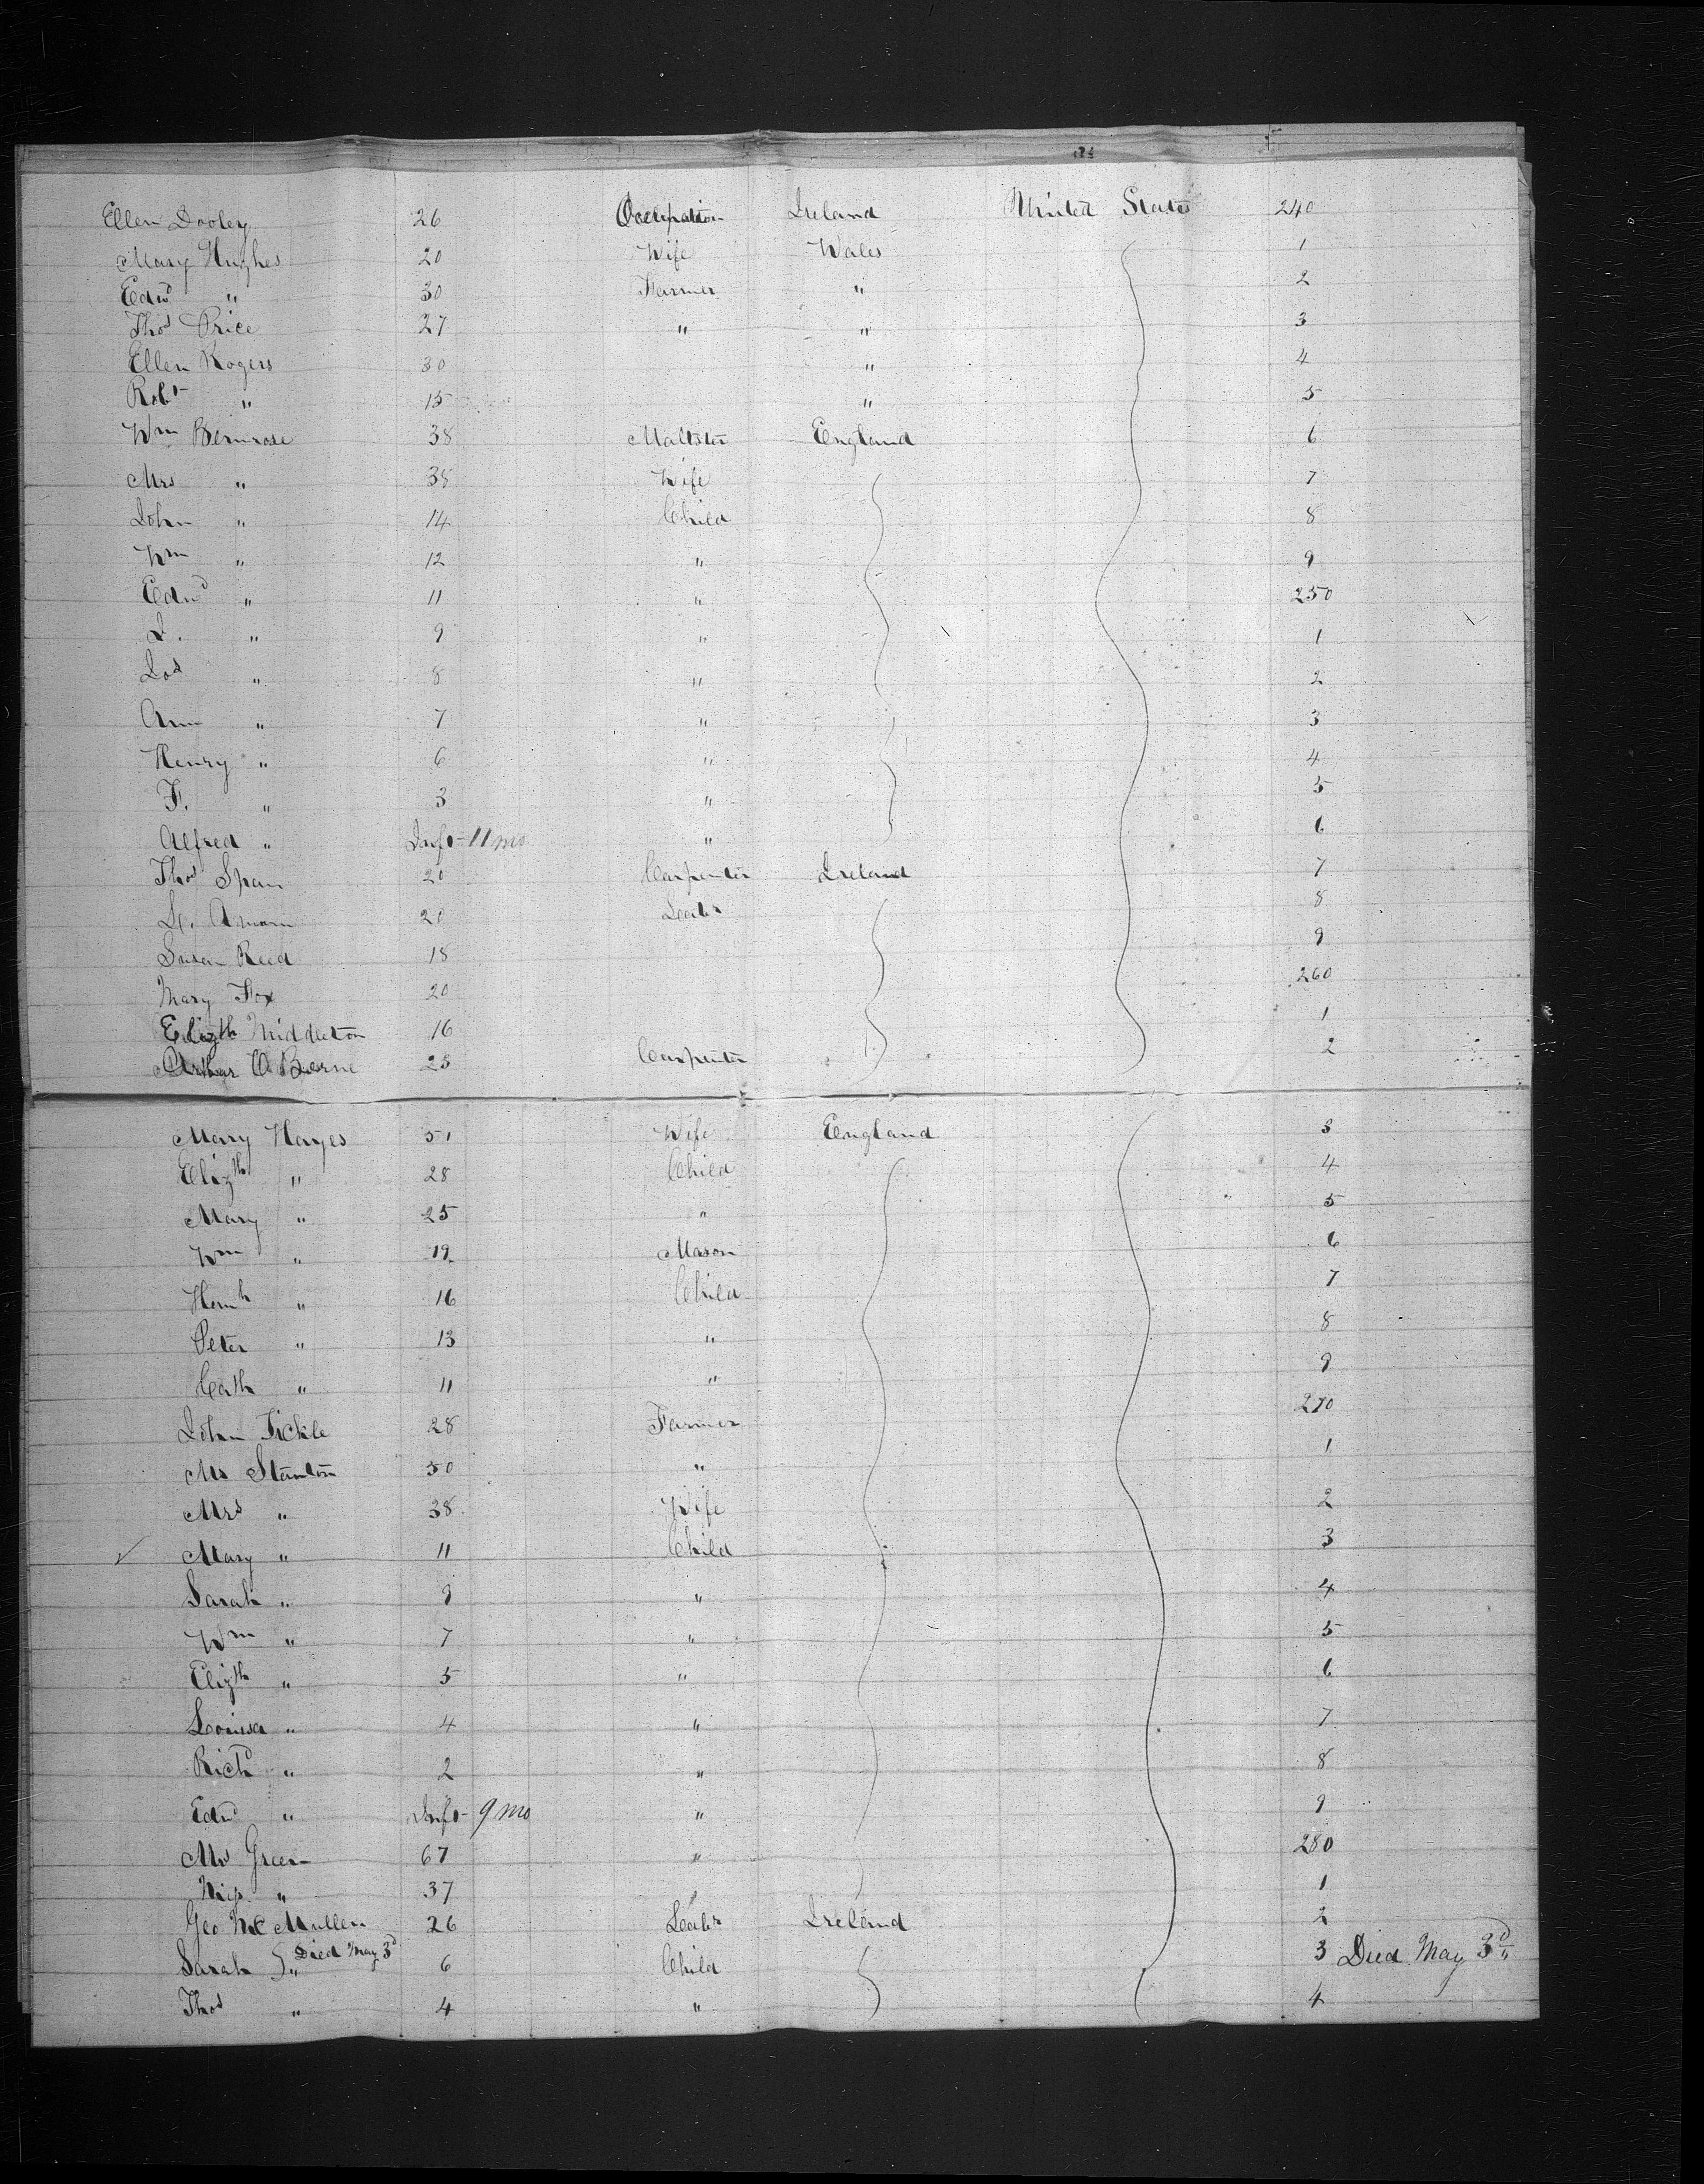 Ellen Dooley 26 Occupation Ireland United States 240
Mary Hughes 20 Wife Wales 1
Edwd " 30 Farmer " 2
Thos Price 27 " " 3
Ellen Rogers 30 " 4
Robt " 15 " 5
Wm Bemrose 38 Maltster England 6
Mrs " 38 Wife 7
John " 14 Child 8
Wm " 12 " 9
Edwd " 11 " 250
J. " 9 " 1
Jos " 8 " 2
Ann " 7 " 3
Henry " 6 " 4
F. " 3 " 5
Alfred " Inft - 11 mo " 6
Thos Span 20 Carpenter Ireland 7
20 8
Susan Reed 18 9
Mary Fox 20 260
Elizth Middleton 16 1
Arthur O Beerne 25 Carpenter 2
Mary Hayes 51 Wife England 3
Elizth " 28 Child 4
Mary " 25 " 5
Wm " 19 Mason 6
" 16 Child 7
Peter " 13 " 8
Cath " 11 " 9
John Tickle 28 Farmer 270
Mr Stanton 50 " 1
Mrs " 38 Wife 2
Mary " 11 Child 3
Sarah " 9 " 4
Wm " 7 " 5
Elizth " 5 " 6
Louisa " 4 " 7
Richd " 2 " 8
Edwd " Inft - 9 mo " 9
Mr Green 67 " 280
" 37 " 1
Geo Mc Mullen 26 Ireland 2
Sarah " Died May 3d 6 Child 3 Died May 3d
Thos " 4 " 4